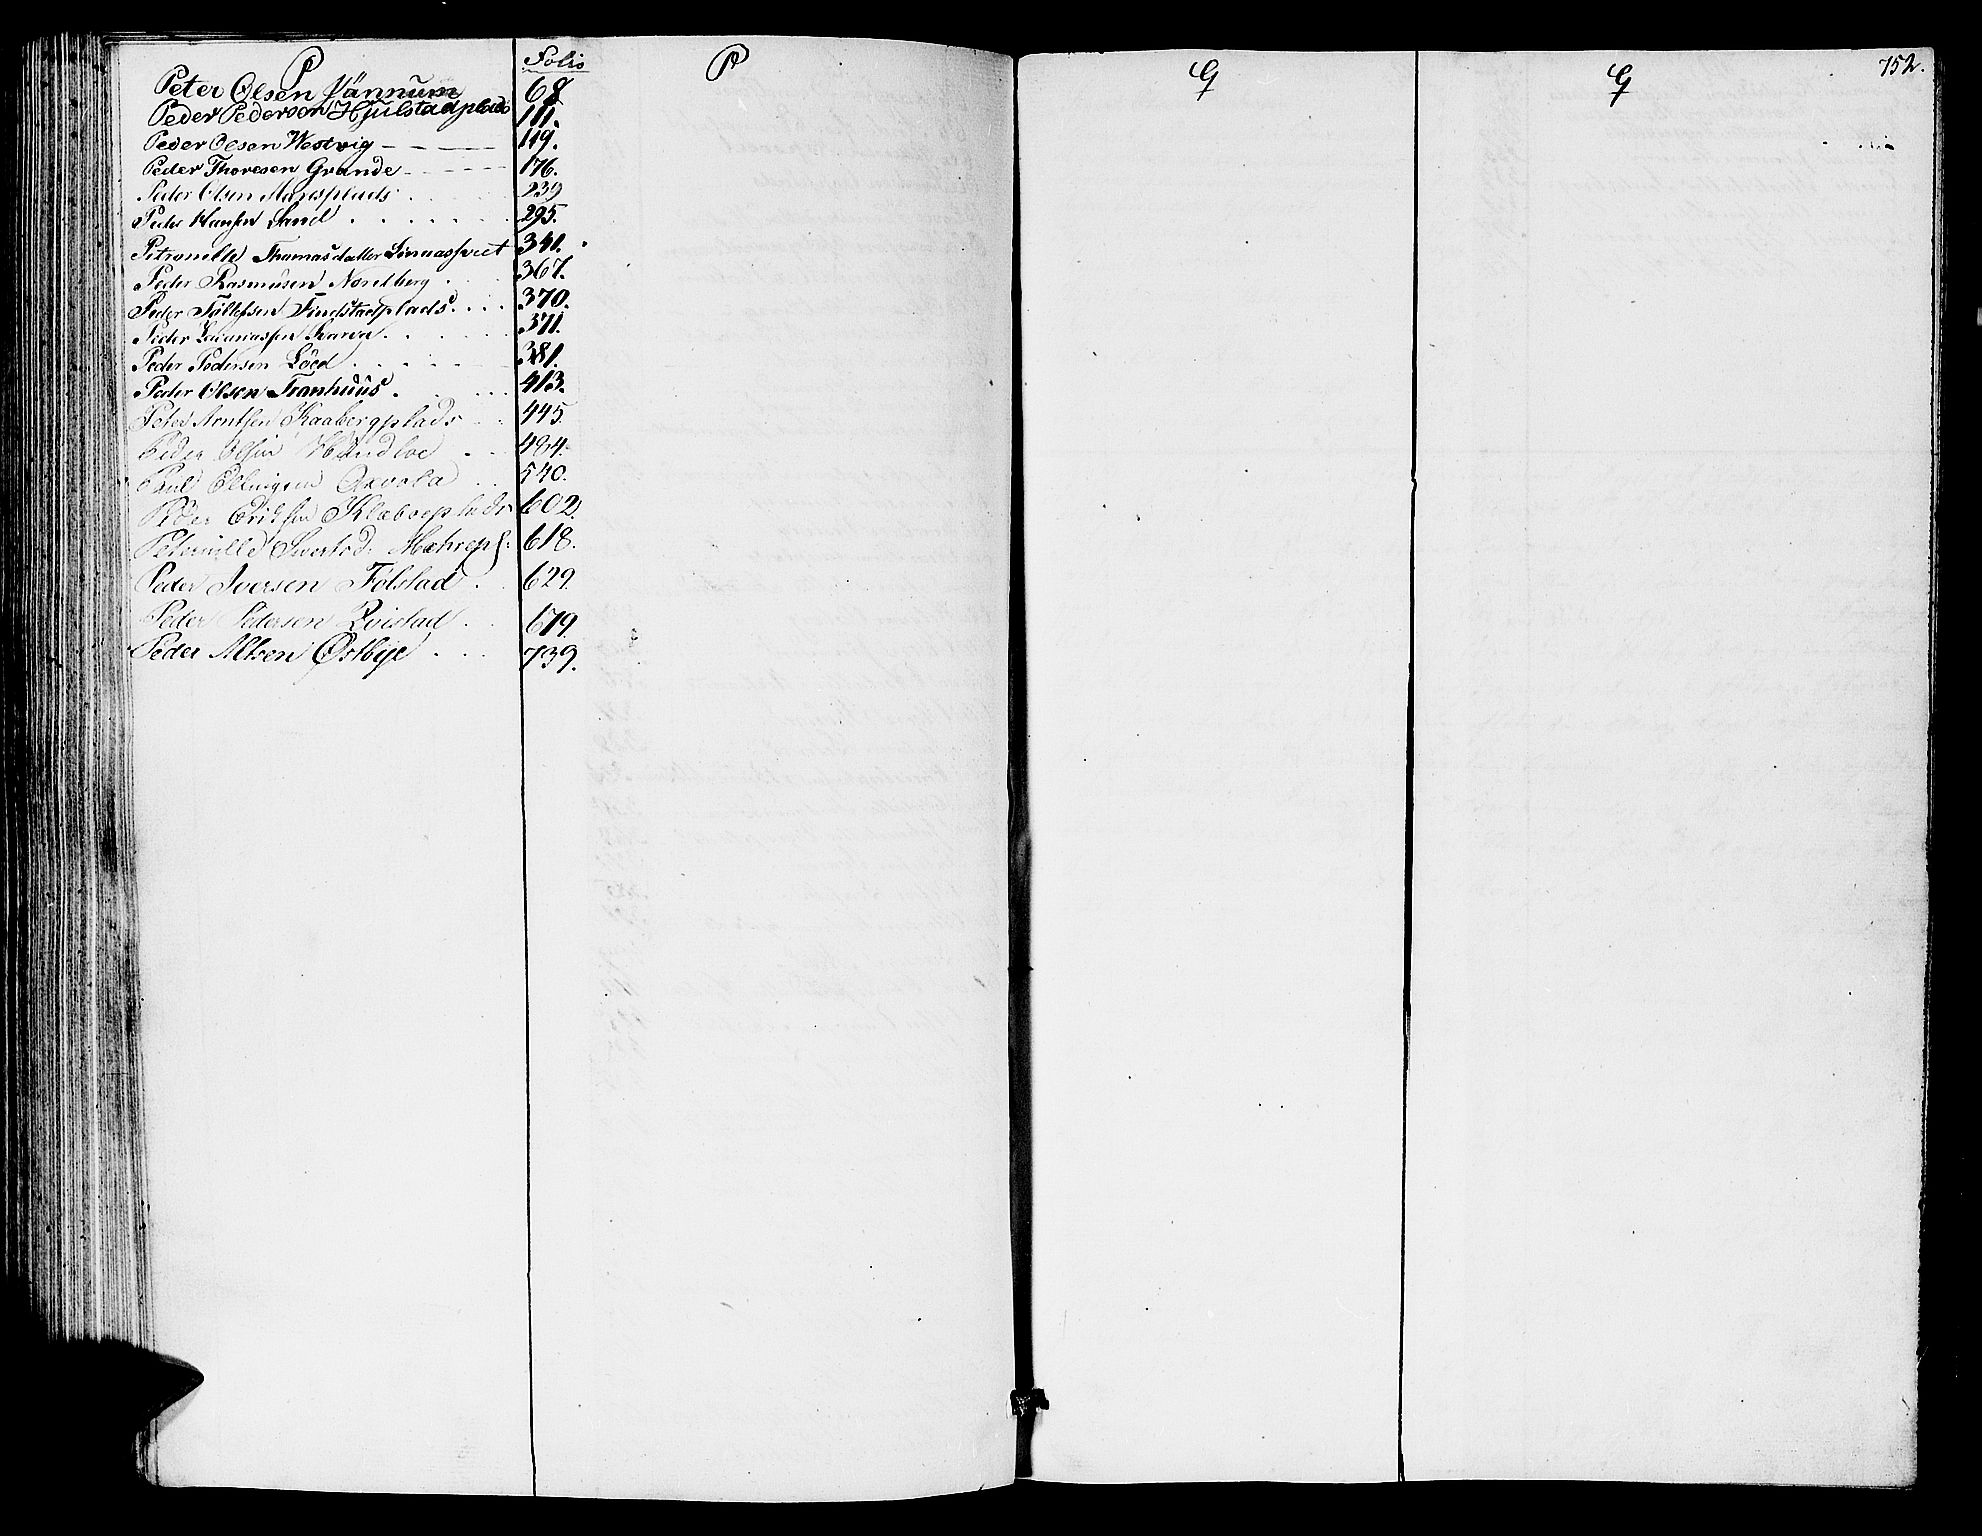 P
Folio
Peter Olsen Vännum 68
Peder Pederson Hjulstadplads 111.
Peder Olsen Westvig 119.
Peder Thoresen Grande 176.
Peder Olsen 239
Peder Hansen Sand 295.
Petronille Thomasdatter 341.
Peder Rasmusen Nordberg 367.
Peder Tollefsen Findstadplads 370.
Peder 371.
Peder Pedersen 381.
Peder Olsen Tranhuus 413.
Peter Arntsen Kaabergplads 445
Peder Olsen 484.
Paul Ellingsen 540.
Peder Eriksen Klæboeplads 602.
Peternille Sivertsd: Mæhrepl: 618.
Peder Iversen Følstad 629.
Peder Pedersen Qvistad 679.
Peder Altsen Østbye 739.
P
Q
Q
752.